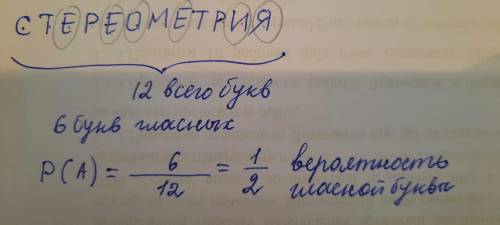 СТЕРЕОМЕТРИЯ
12 всего букв
6 букв гласных
P(A) = 6/12 = 1/2 вероятность
гласной буквы